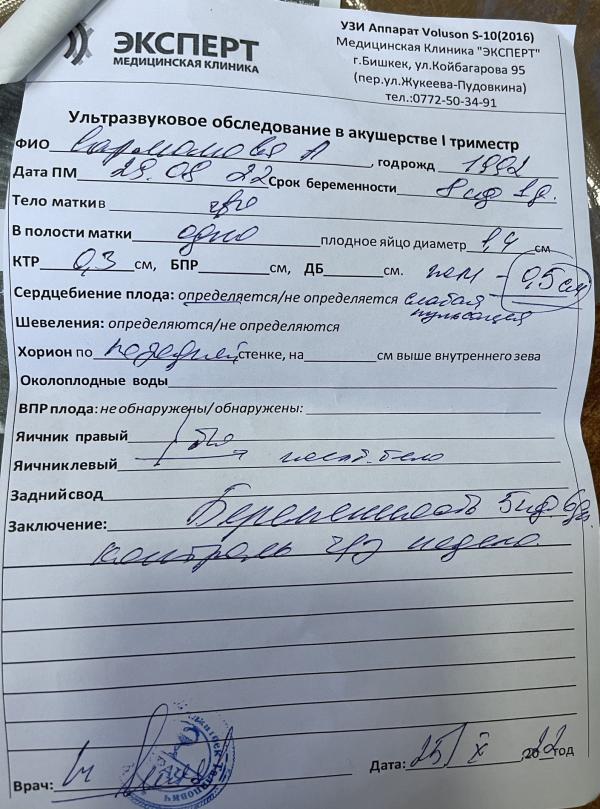 ЭКСПЕРТ
МЕДИЦИНСКАЯ КЛИНИКА
УЗИ Аппарат Voluson S-10(2016)
Медицинская Клиника "ЭКСПЕРТ"
г.Бишкек, ул.Койбагарова 95
(пер.ул.Жукеева-Пудовкина)
тел.:0772-50-34-91
Ультразвуковое обследование в акушерстве I триместр
ФИО , год рожд 1992
Дата ПМ 29.08 22 Срок беременности 8 нд 1 д.
Тело матки в
В полости матки одно плодное яйцо диаметр 1,4 см
КТР 0,3 см, БПР см, ДБ см. 0,5 см
Сердцебиение плода: определяется/не определяется слабая
пульсация
Шевеления: определяются/не определяются
Хорион по передней стенке, на см выше внутреннего зева
Околоплодные воды
ВПР плода: не обнаружены/ обнаружены:
Яичник правый б/о
Яичник левый тело
Задний свод
Заключение: Беременность 5 нд. 6 дн.
контроль чрз неделю.
Врач: Дата: 25/X 2022 год